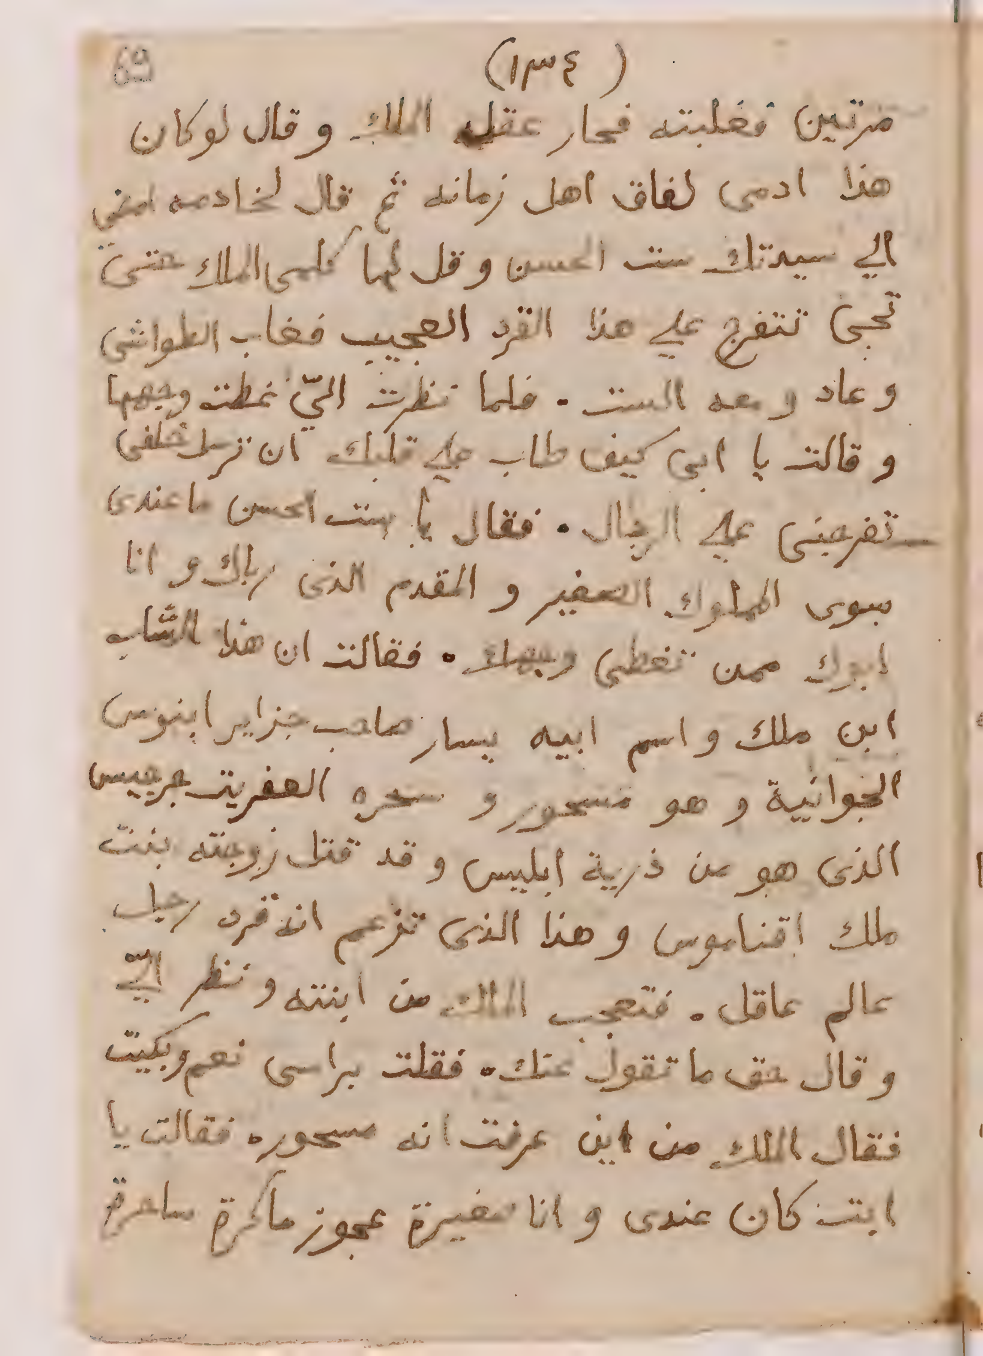 69
(١٣٤)
مرتين فغلبته فحار عقل الملك و قال لوكان
هذا ادمى لفاق اهل زمانه ثم قال لخادمه امضي
الي سيدتك ست الحسن و قل لها كلمى الملك حتى
تجى تتفرج علي هذا القرد العجيب فغاب الطواشى
و عاد و معه الست . فلما نظرت اليّ غطت وجهها
و قالت يا ابى كيف طاب علي قلبك ان ترسل خلفى
تفرجنى علي الرجال . فقال يا ست الحسن ما عندى
سوى المملوك الصغير و المقدم الذى رباك و انا
ابوك ممن تغطى وجهك . فقالت ان هذا الشّاب
ابن ملك و اسم ابيه يسار صاحب جزاير ابنوس
الجوانية و هو مسحور و سحره العفريت جرجيس
الذى هو من ذرية ابليس و قد قتل زوجته بنت
ملك اقناموس و هذا الذى تزعم انه قرد رجل
عالم عاقل . فتعجب الملك من ابنته و نظر اليّ
و قال حق ما تقول عنك . فقلت براسى نعم وبكيت
فقال الملك من اين عرفت انه مسحور . فقالت يا
ابت كان عندى و انا صغيرة عجوز ماكرة ساحرة